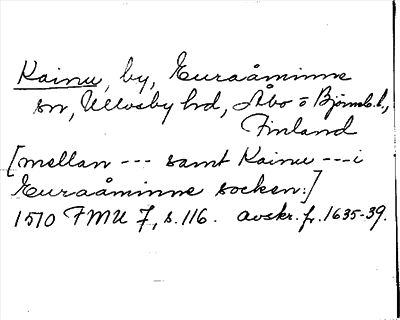 Kainu, by, Euraåminne
sn, Ulvsby hd, Åbo o Björneb. l.,
Finland
[mellan --- samt Kainu --- i
Euraåminne socken:]
1510 FMU 7, s. 116. avskr. fr. 1635-39.